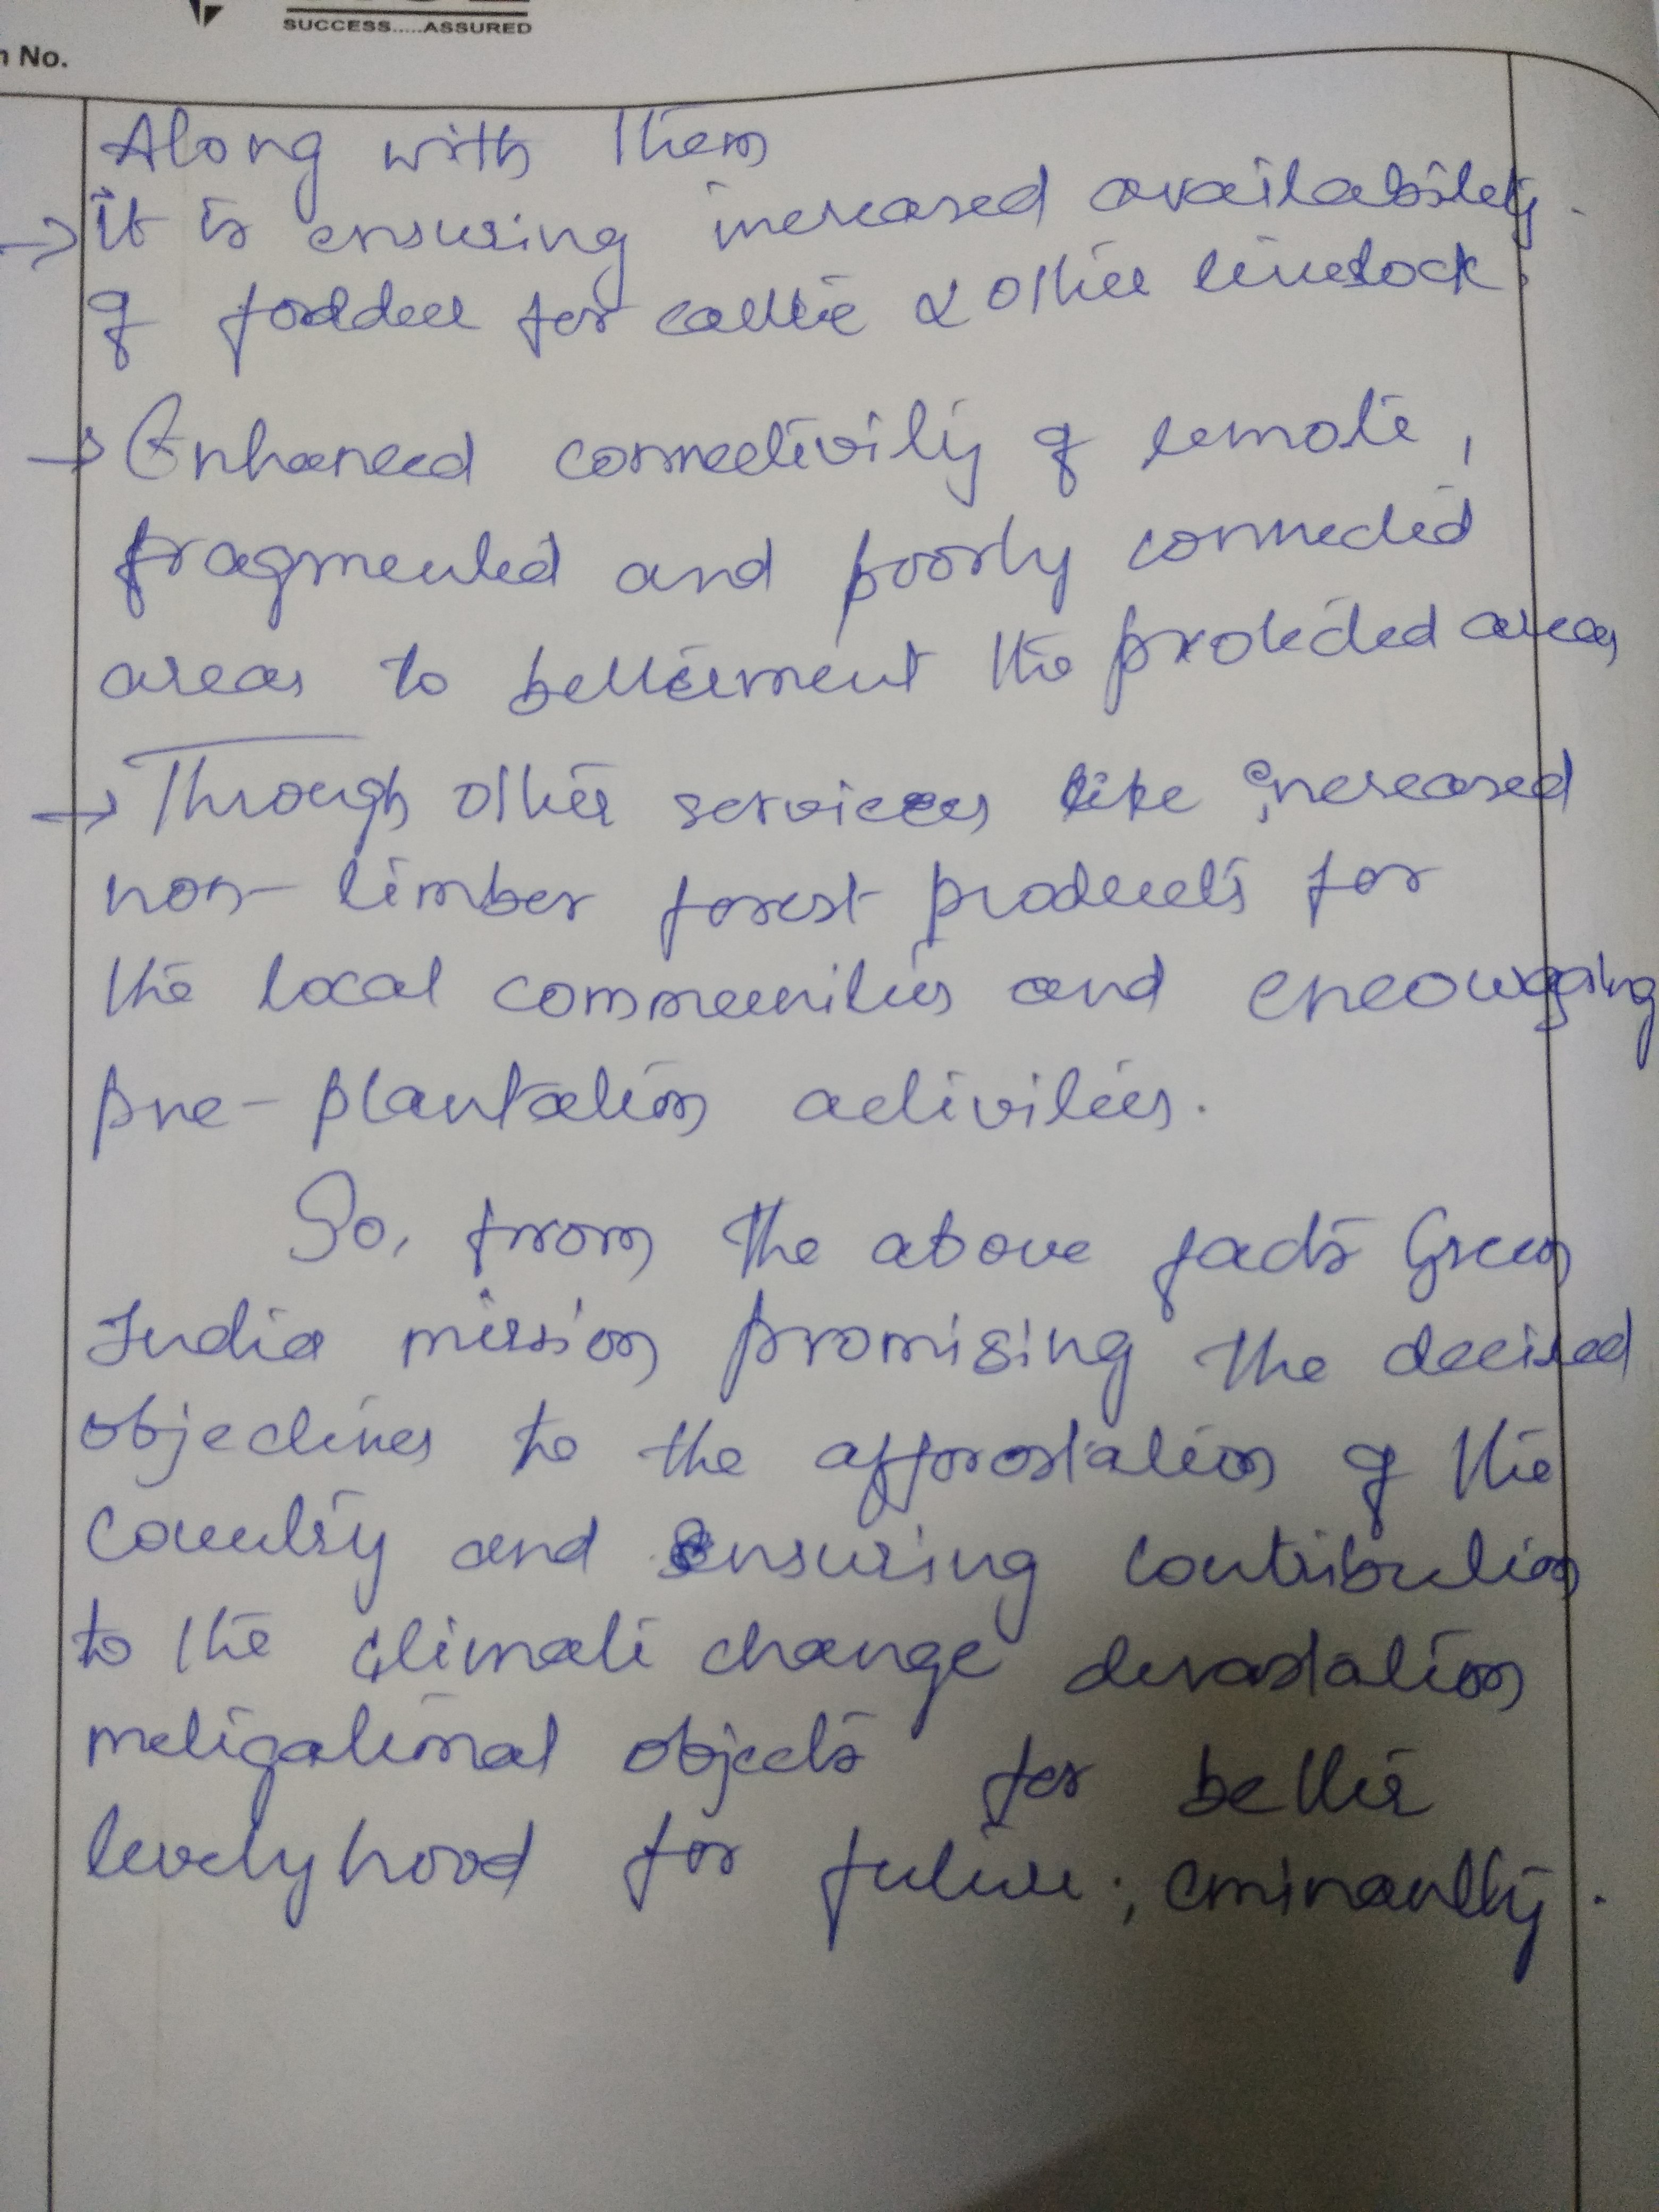 SUCCESS.....ASSURED
No.
Along with them
→ it is ensuring increased availability.
of fodder for cattle & other livestock.
→ Enhanced connectivity of remote,
fragmented and poorly connected
areas to betterment the protected areas
→ Through other services like increased
non-timber forest products for
the local communities and encouraging
pre-plantation activities.
So, from the above facts Green
India mission promising the decised
objectives to the afforostation of the
Country and ensuring contribution
to the climate change devastation
metigational objects for better
levelyhood for future; eminantly.